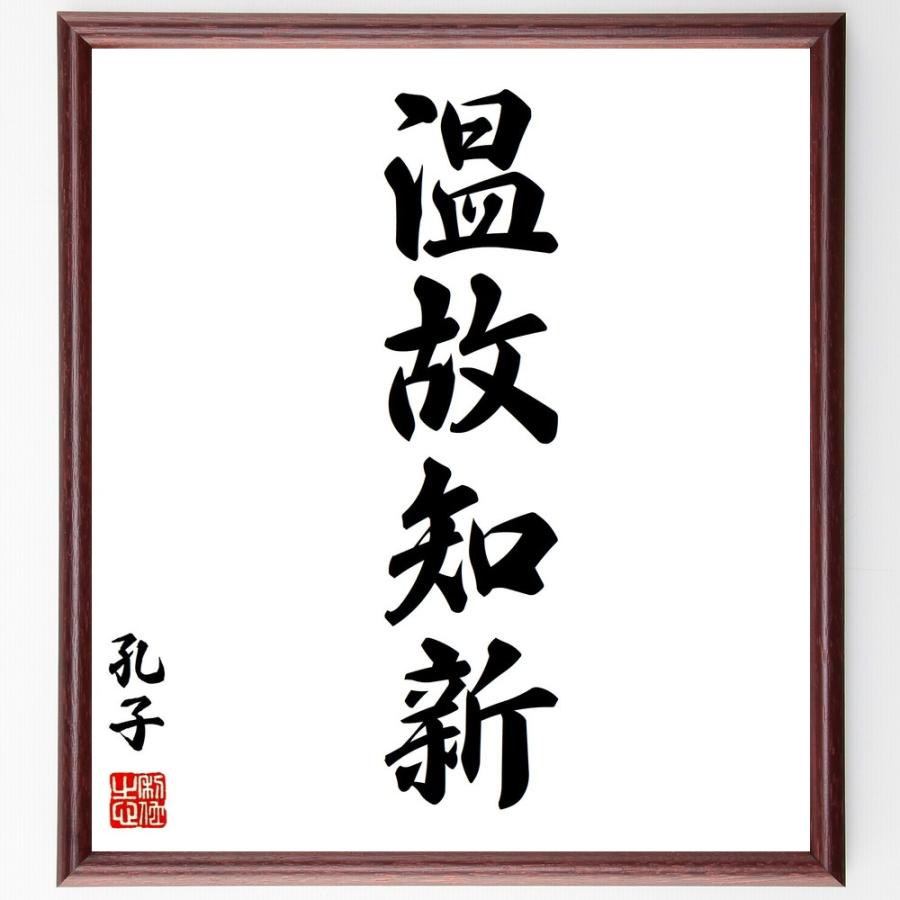 温故知新
孔子